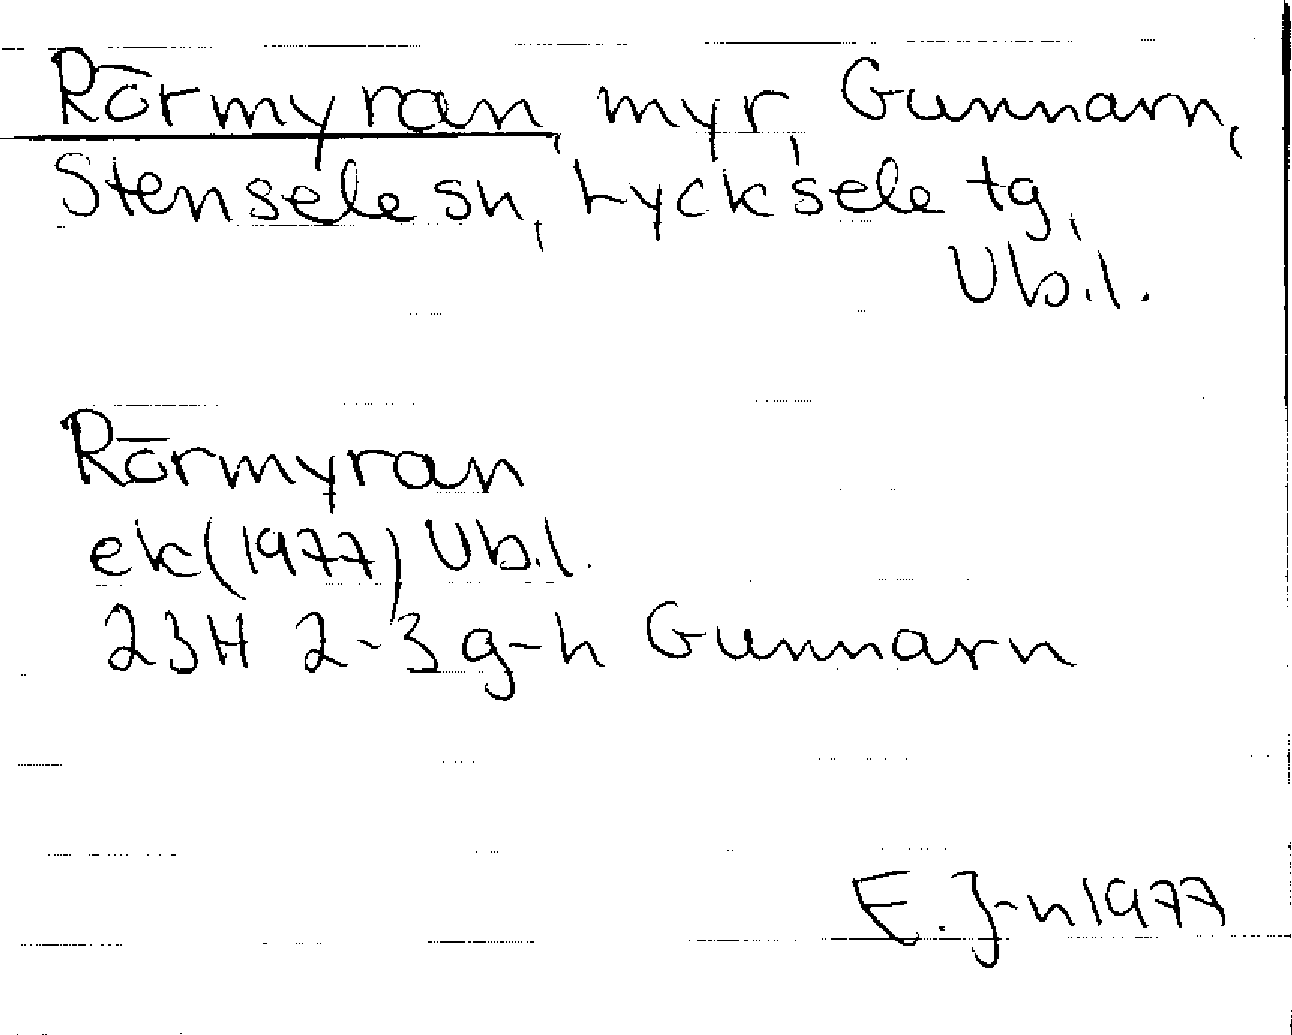 Rörmyran, myr, Gunnarn,
Stensele sn, Lycksele tg,
Vb.l.
Rörmyran
ek(1977) Vb.l.
23H 2-3 g-h Gunnarn
E. J-n 1977